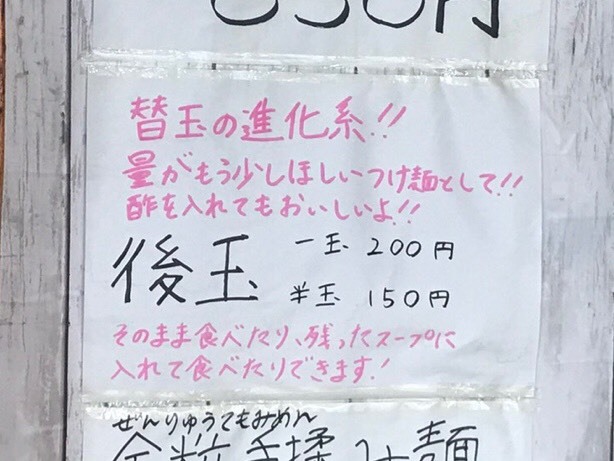 替玉の進化系!!
量がもう少しほしいつけ麺として!!
酢を入れてもおいしいよ!!
後玉 一玉 200円
半玉 150円
そのまま食べたり、残ったスープに
入れて食べたりできます!
ぜんりゅうてもみめん
全粒手揉み麺